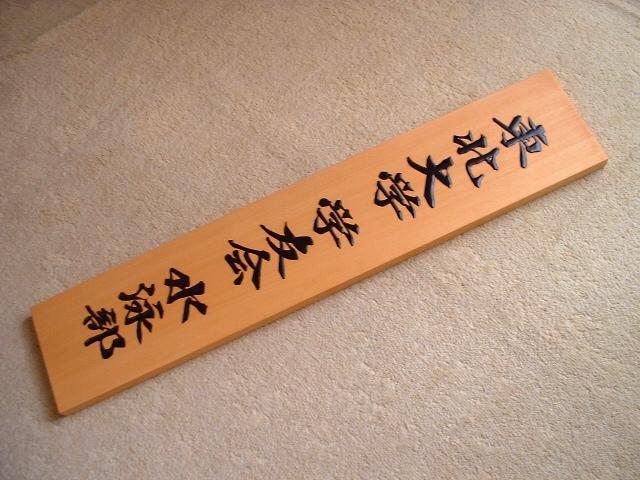 東北大学学友会水泳部